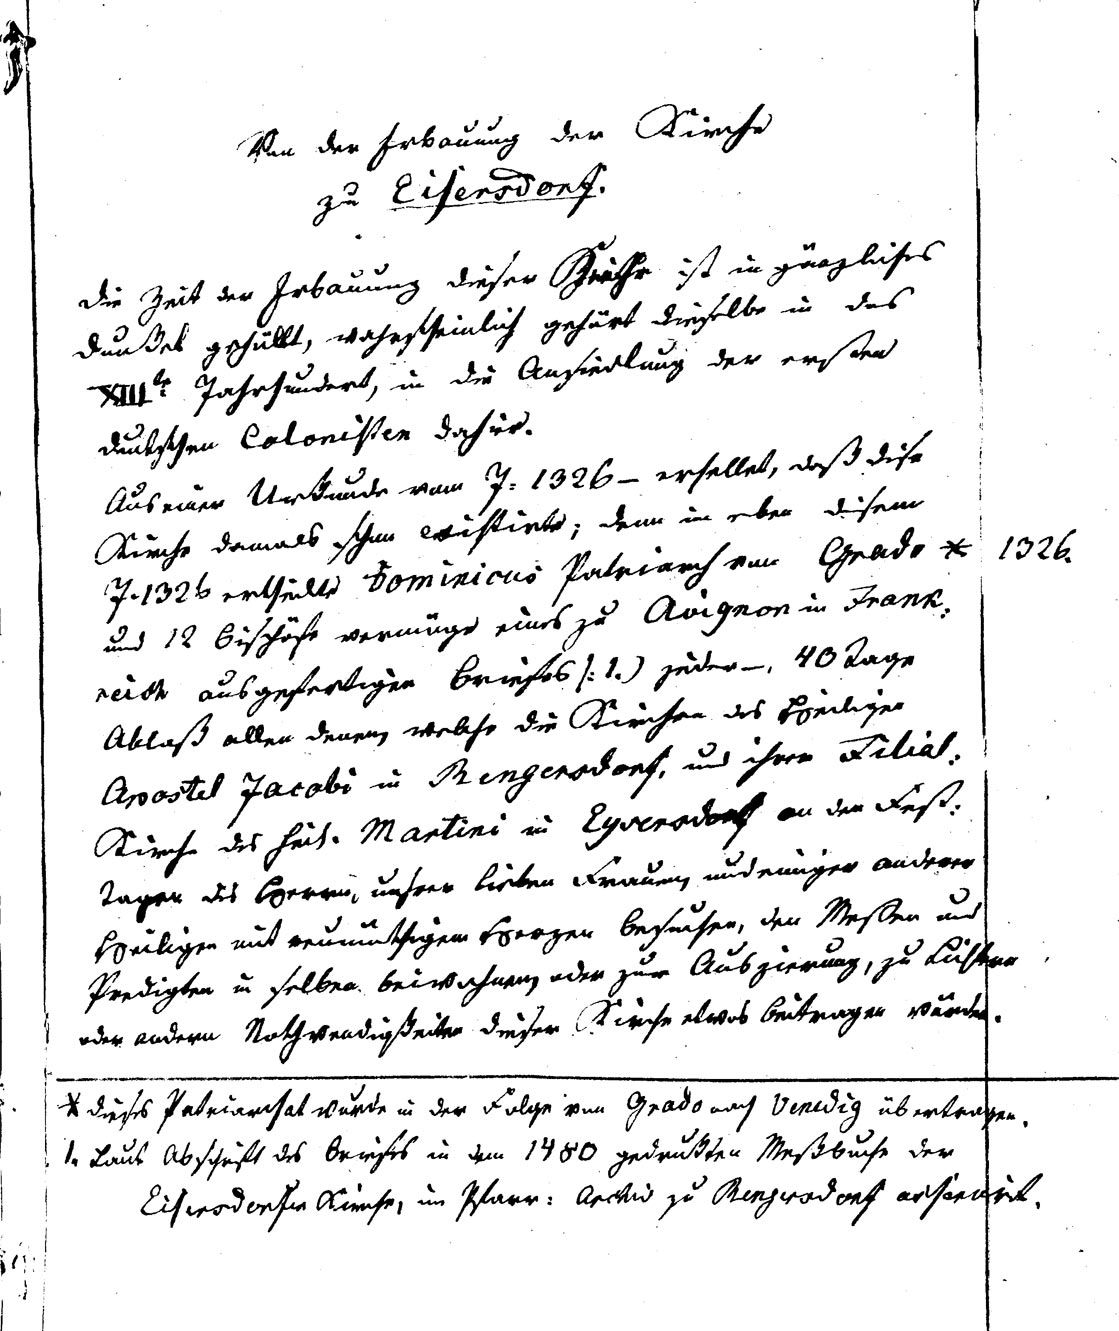 Von der Erbauung der Kirche
zu Eisersdorf.
Die Zeit der Erbauung dieser Kirche ist in gänzliches
Dunkel gehüllt, wahrscheinlich gehört dieselbe in das
XIIIte Jahrhundert, in die Ansiedlung der ersten
deutschen Colonisten dahier.
Aus einer Urkunde vom J: 1326 – erhellet, daß diese
Kirche damals schon existirte; denn in eben diesem
J. 1326 ertheilte Dominicus Patriarch von Grado * 1326.
und 12 Bischöfe vermöge eines zu Avignon in Frank:
reich ausgefertigen Briefes (: 1.) jeder –, 40 Tage
Ablaß allen denen, welche die Kirchen des Heiligen
Apostel Jacobi in Rengersdorf, und ihrer Filial:
Kirche des heil. Martini in Eyversdorf an den Fest:
Tagen des Herrn, unsrer lieben Frauen, und einiger anderer
Heiligen mit reumüthigem Herzen besuchen, den Messen und
Predigten in selben beiwohnen, oder zur Auszierung, zu Lichtern
oder andern Nothwendigkeiten dieser Kirche etwas beitragen würden.
* Dieses Patriarchat wurde in der Folge von Grado nach Venedig übertragen.
1. Laut Abschrift des Briefes in dem 1480 gedrukten Meßbuche der
Eisersdorfer Kirche, im Pfarr: Archiv zu Rengersdorf